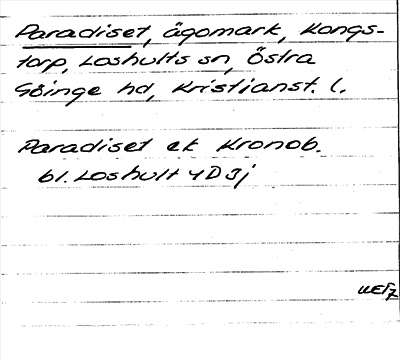 Paradiset, ägomark, Kongs-
torp, Loshults sn, Östra
Göinge hd, Kristianst. l.
Paradiset ek Kronob.
bl. Loshult 4D3j